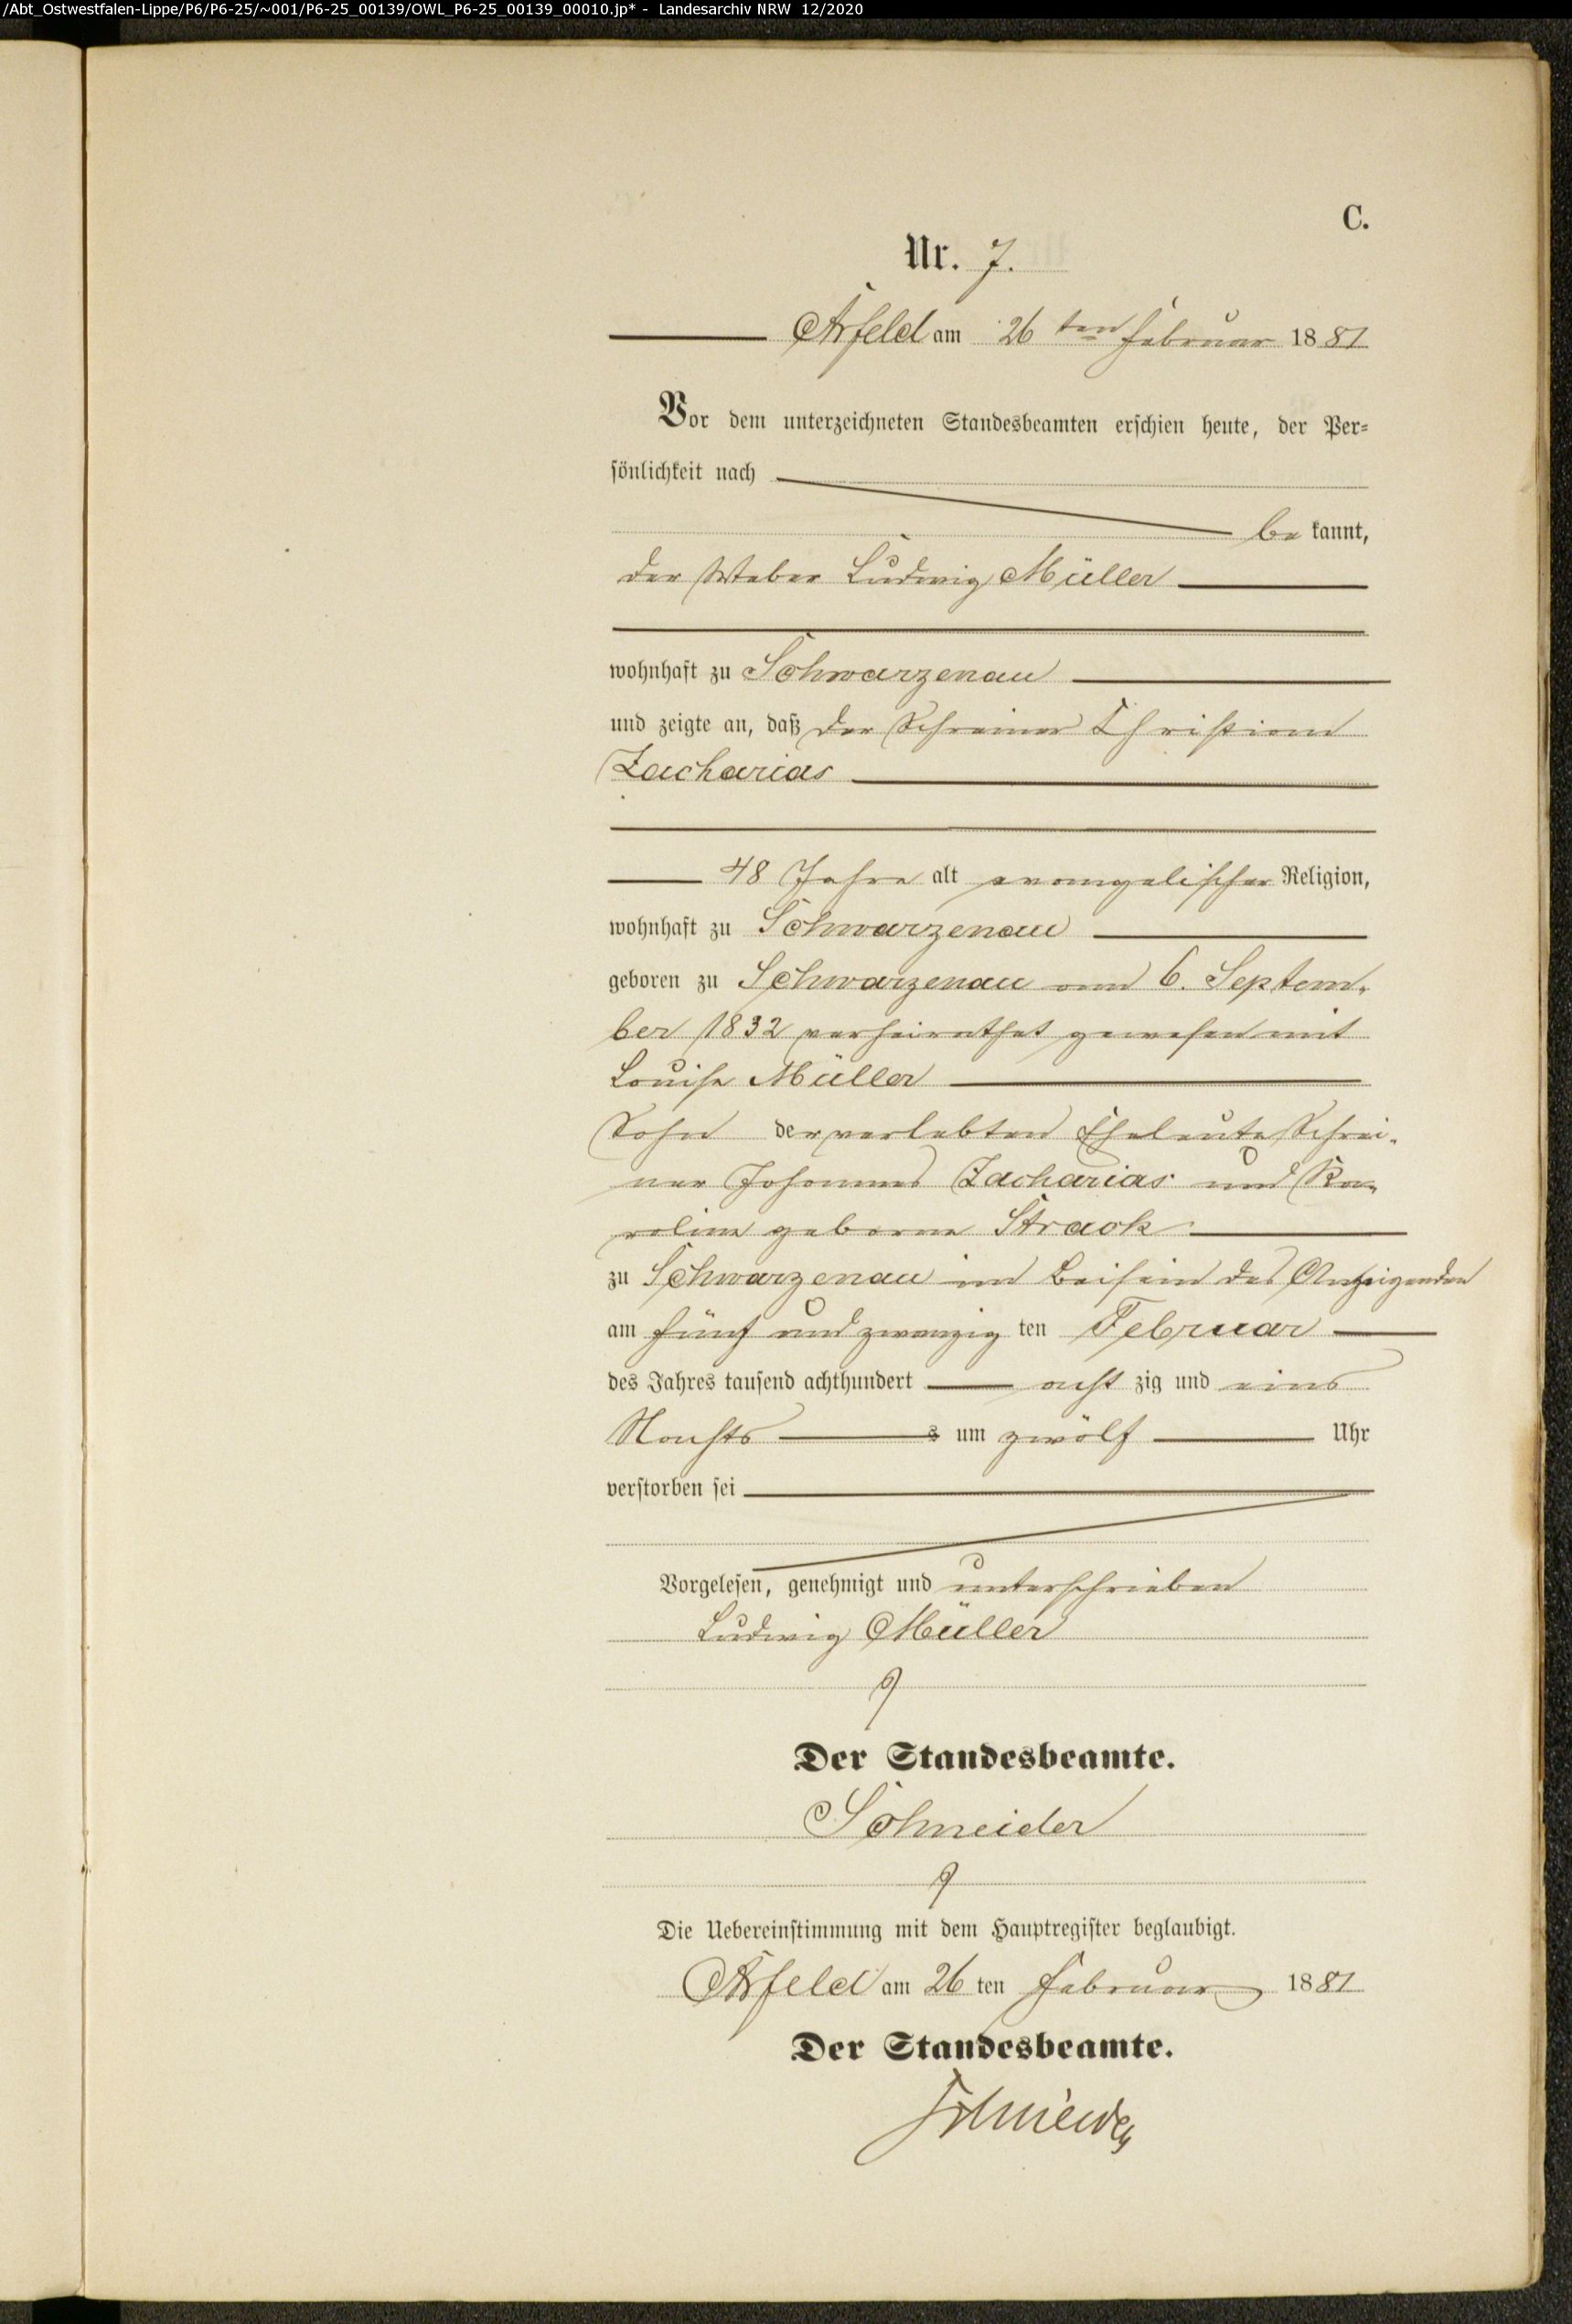 /Abt_Ostwestfalen-Lippe/P6/P6-25/~001/P6-25_00139/OWL_P6-25_00139_00010.jp* - Landesarchiv NRW 12/2020
C.
Nr. 7.
Arfeld am 26 ten Februar 1881
Vor dem unterzeichneten Standesbeamten erschien heute, der Per-
sönlichkeit nach
be kannt,
der Weber Ludwig Müller
wohnhaft zu Schwarzenau
und zeigte an, daß der Schreiner Christian
Zacharias
48 Jahre alt evangelischer Religion,
wohnhaft zu Schwarzenau
geboren zu Schwarzenau am 6. Septem-
ber 1832 verheirathet gewesen mit
Louise Müller
Sohn der verlebten Eheleute Schrei-
ner Johannes Zacharias und Ka-
roline geborne Strack
zu Schwarzenau im Beisein des Anzeigenden
am fünf und zwanzig ten Februar
des Jahres tausend achthundert acht zig und eins
Nachts s um zwölf Uhr
verstorben sei
Vorgelesen, genehmigt und unterschrieben
Ludwig Müller
Der Standesbeamte.
Schneider
Die Uebereinstimmung mit dem Hauptregister beglaubigt.
Arfeld am 26 ten Februar 1881
Der Standesbeamte.
Schneider